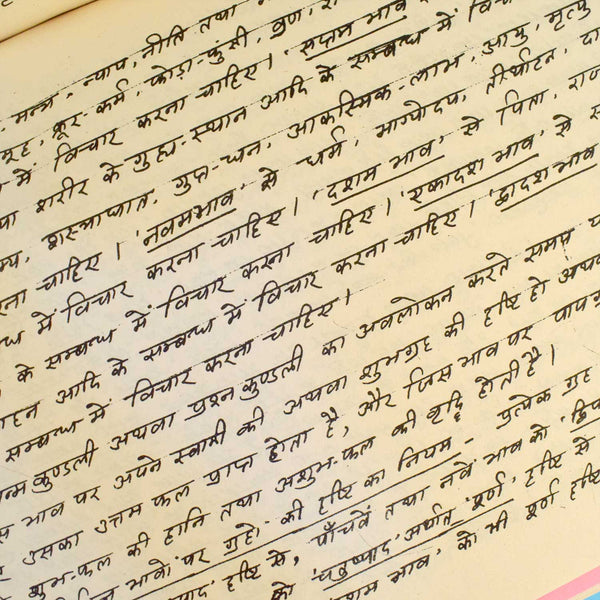 मन्त्र, न्याय, नीति तथा
क्रूर-कर्म, फोड़ा-फुंसी, व्रण,
में विचार करना चाहिए। 'सप्तम भाव
शरीर के गुह्य-स्थान आदि के सम्बन्ध में
शस्त्राघात, गुप्त-धन, आकस्मिक-लाभ, आयु, मृत्यु
चाहिए। 'नवमभाव' से धर्म, भाग्योदय, तीर्थाटन,
में विचार करना चाहिए। 'दशम भाव' से पिता,
के सम्बन्ध में विचार करना चाहिए। 'एकादश भाव' से
आदि के सम्बन्ध में विचार करना चाहिए। 'द्वादश भाव
सम्बन्ध में विचार करना चाहिए।
कुण्डली अथवा प्रश्न कुण्डली का अवलोकन करते समय
भाव पर अपने स्वामी की अथवा शुभग्रह की दृष्टि हो अथवा
उसका उत्तम फल प्राप्त होता है, और जिस भाव पर
शुभ-फल की हानि तथा अशुभ-फल की वृद्धि होती है।
भावों पर ग्रहों की दृष्टि का नियम - प्रत्येक ग्रह
दृष्टि से, पाँचवें तथा नवें भाव को
को 'चतुष्पाद' अर्थात् 'पूर्ण' दृष्टि से
भाव' को भी पूर्ण दृष्टि